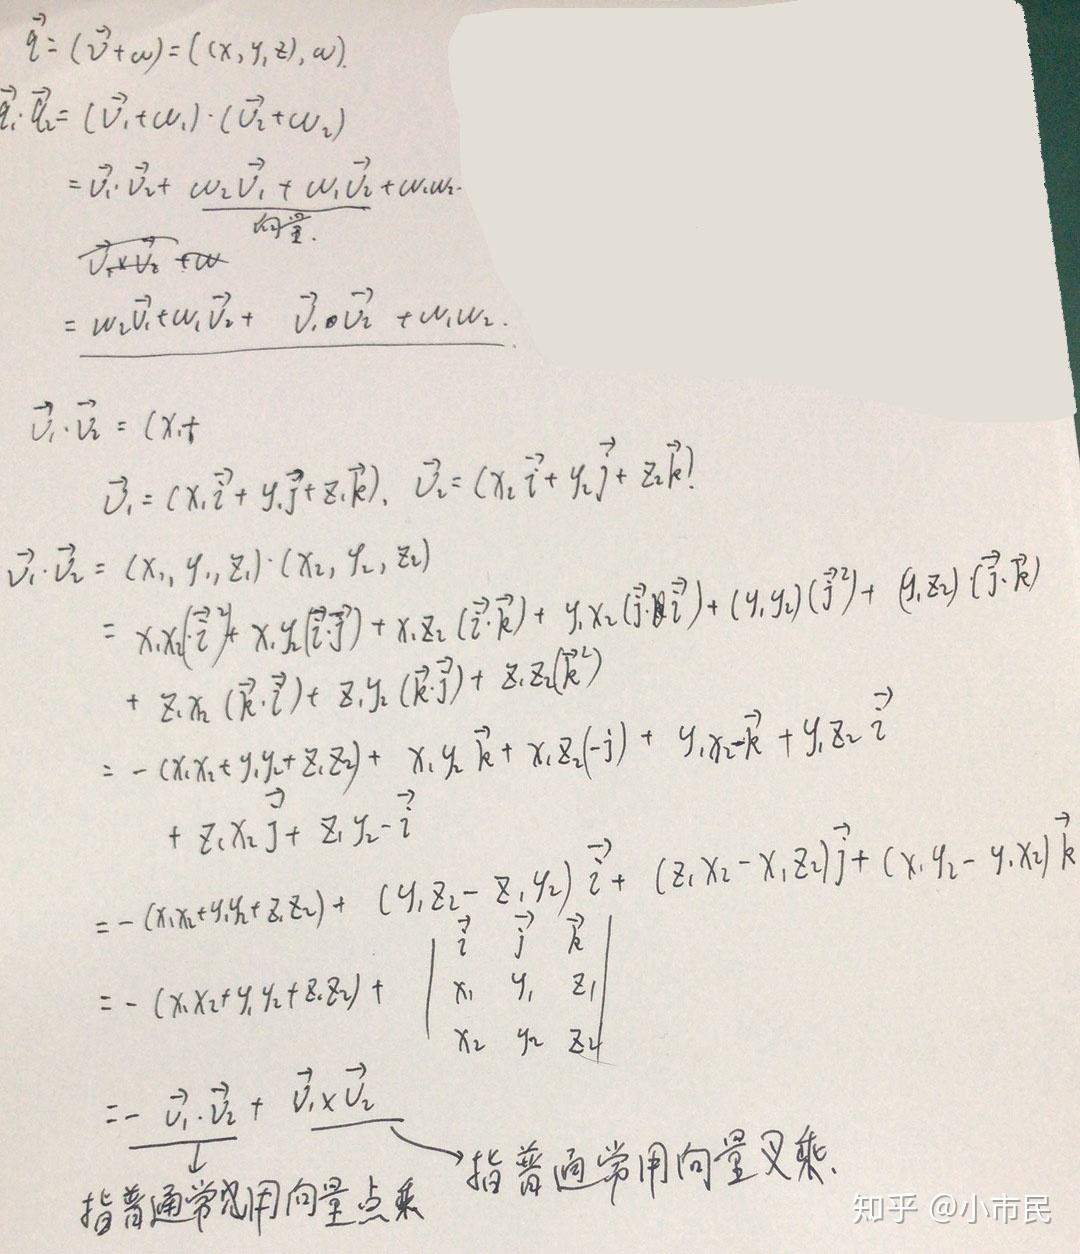 q⃗ = (v⃗+w) = ((x, y, z), w).
q⃗₁·q⃗₂ = (v⃗₁+w₁)·(v⃗₂+w₂)
= v⃗₁·v⃗₂ + w₂v⃗₁ + w₁v⃗₂ + w₁w₂.
向量.
v⃗₁×v⃗₂ + w
= w₂v⃗₁ + w₁v⃗₂ + v⃗₁·v⃗₂ + w₁w₂.
v⃗₁·v⃗₂ = (x₁+
v⃗₁ = (x₁i⃗ + y₁j⃗ + z₁k⃗), v⃗₂ = (x₂i⃗ + y₂j⃗ + z₂k⃗)
v⃗₁·v⃗₂ = (x₁, y₁, z₁)·(x₂, y₂, z₂)
= x₁x₂(i⃗²) + x₁y₂(i⃗·j⃗) + x₁z₂(i⃗·k⃗) + y₁x₂(j⃗·i⃗) + (y₁y₂)(j⃗²) + (y₁z₂)(j⃗·k⃗)
+ z₁x₂(k⃗·i⃗) + z₁y₂(k⃗·j⃗) + z₁z₂(k⃗²)
= -(x₁x₂+y₁y₂+z₁z₂) + x₁y₂k⃗ + x₁z₂(-j) + y₁x₂-k⃗ + y₁z₂i⃗
+ z₁x₂j⃗ + z₁y₂-i⃗
= -(x₁x₂+y₁y₂+z₁z₂) + (y₁z₂ - z₁y₂)i⃗ + (z₁x₂ - x₁z₂)j⃗ + (x₁y₂ - y₁x₂)k⃗
i⃗ j⃗ k⃗
= -(x₁x₂+y₁y₂+z₁z₂) + | x₁ y₁ z₁ |
x₂ y₂ z₂
= - v⃗₁·v⃗₂ + v⃗₁×v⃗₂
指普通常用向量叉乘.
指普通常用向量点乘
知乎 @小市民